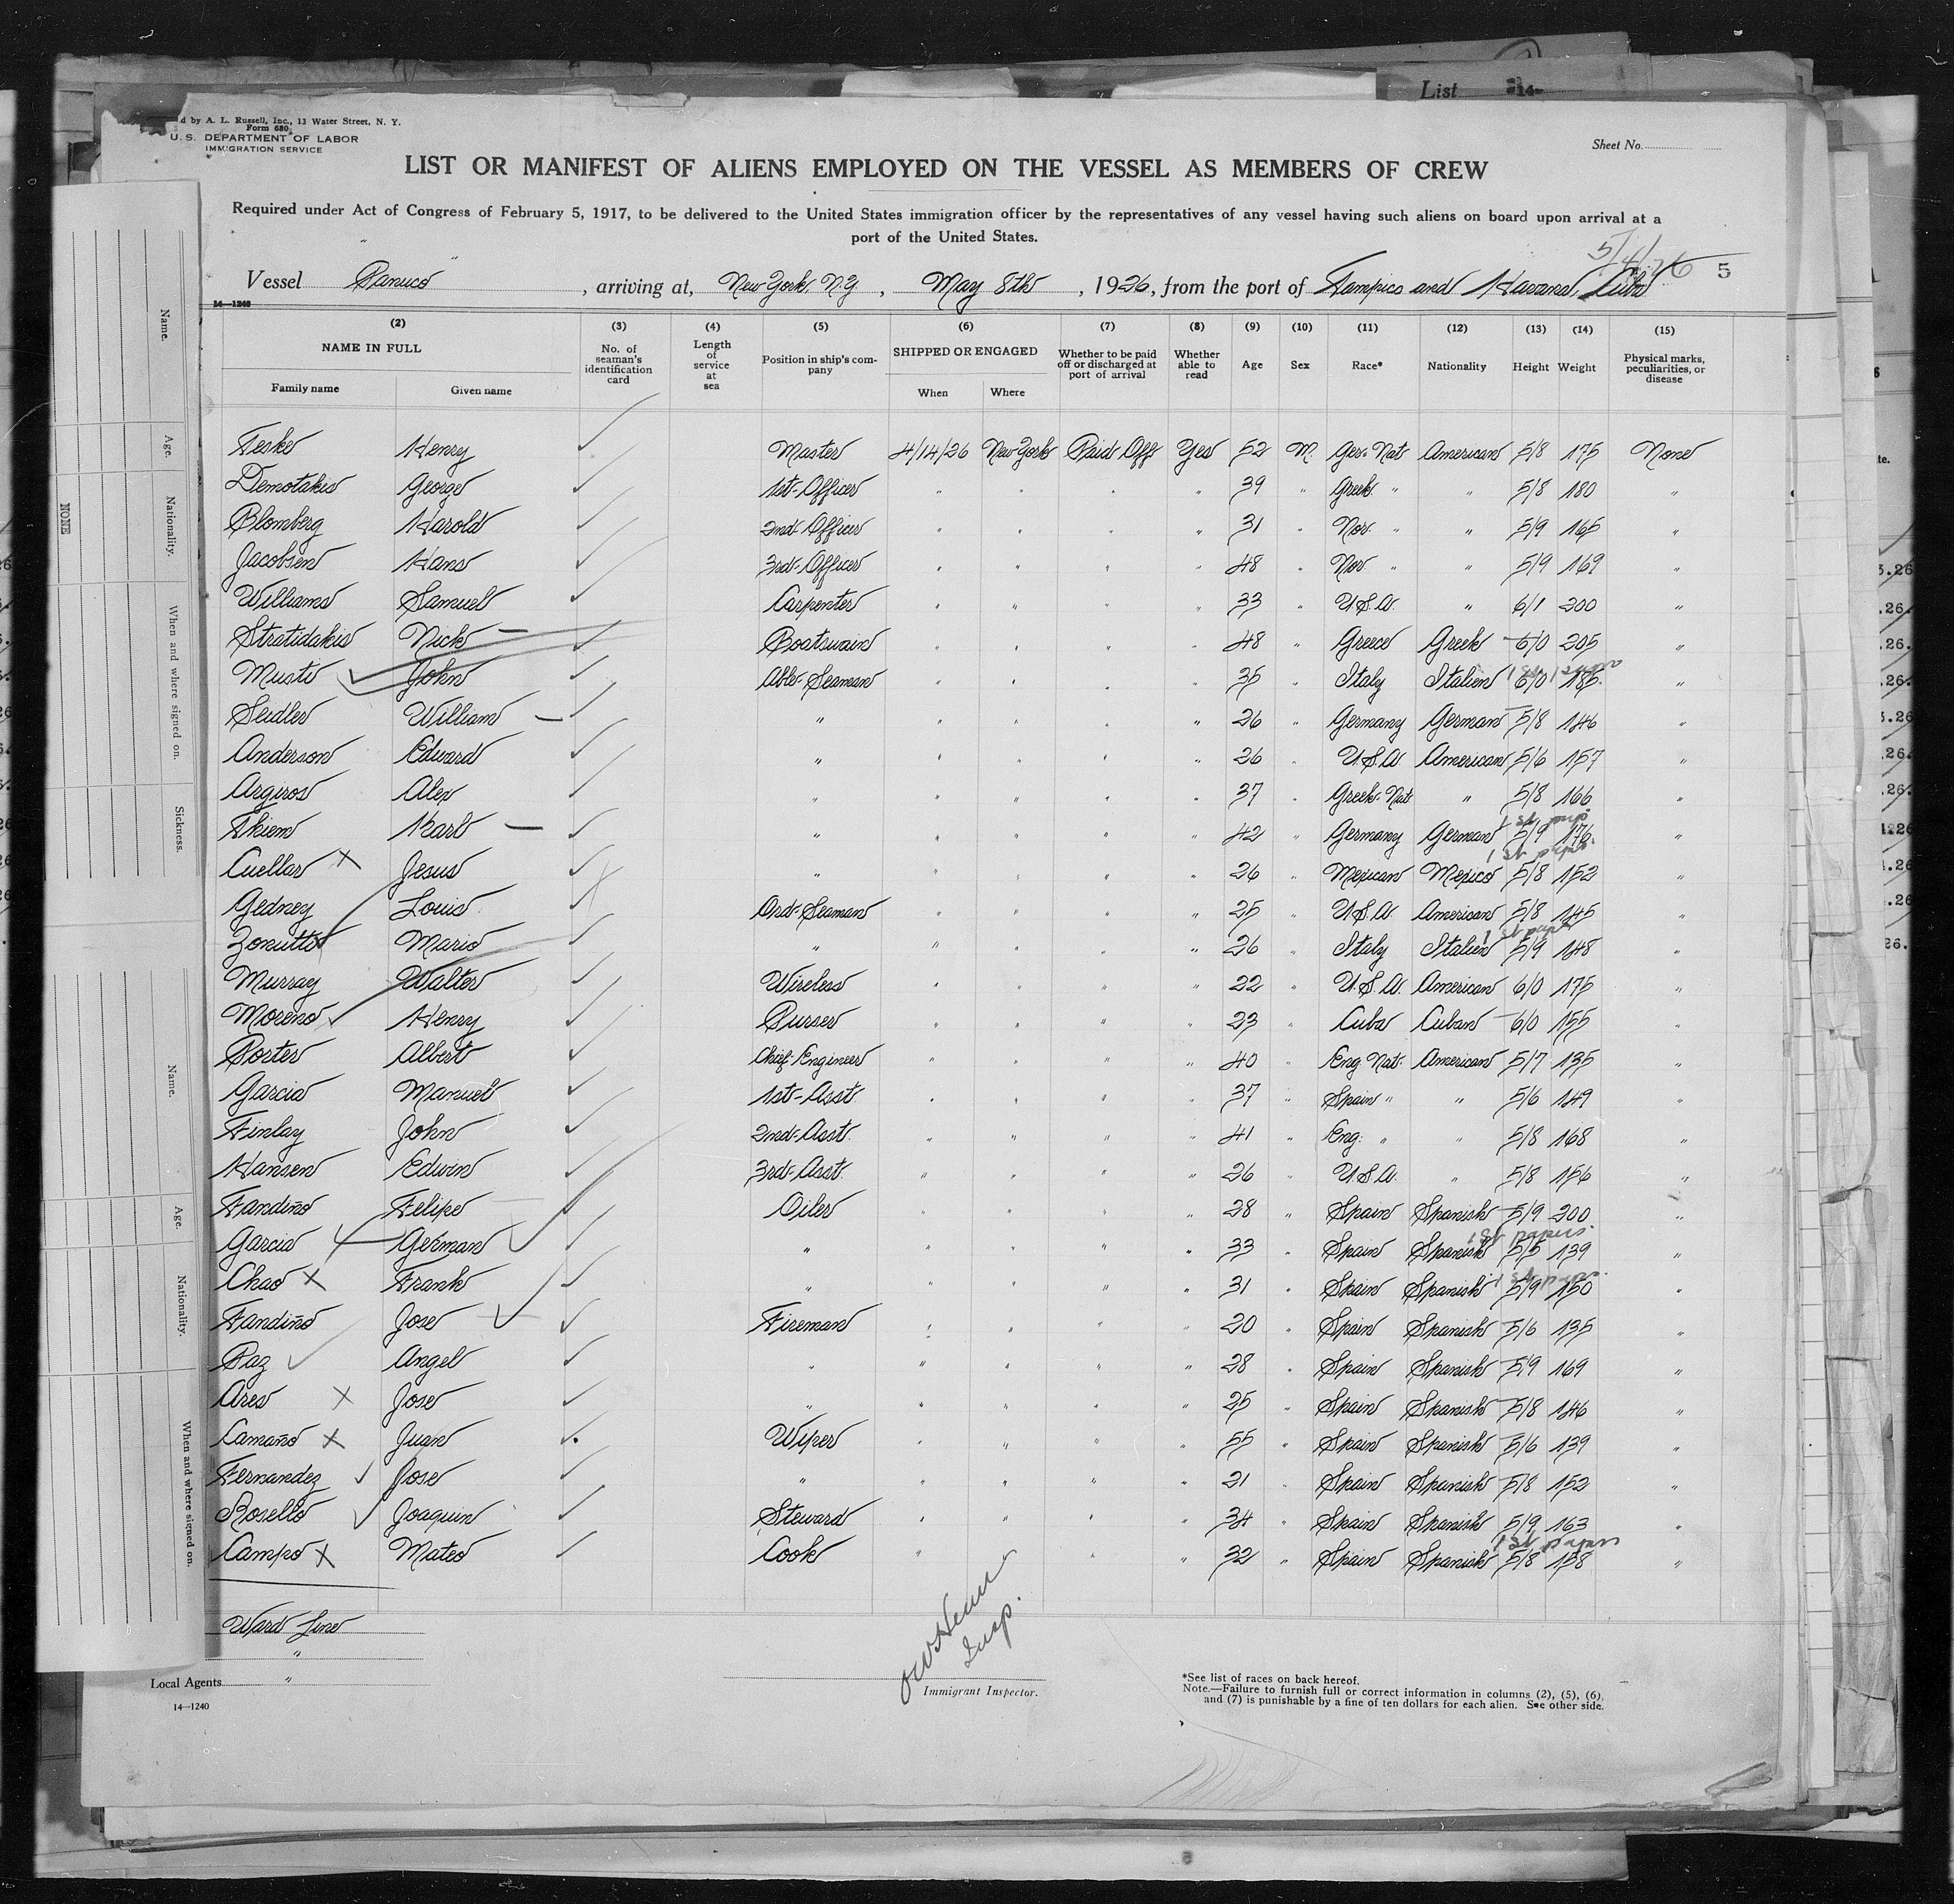 List 14
d by A. L. Russell, Inc., 13 Water Street, N. Y.
Form 680
U. S. DEPARTMENT OF LABOR
IMMIGRATION SERVICE
Sheet No.
LIST OR MANIFEST OF ALIENS EMPLOYED ON THE VESSEL AS MEMBERS OF CREW
Required under Act of Congress of February 5, 1917, to be delivered to the United States immigration officer by the representatives of any vessel having such aliens on board upon arrival at a
port of the United States.
5
Vessel "Panuco", arriving at, New York, N.Y, May 8th, 1926, from the port of Tampico and Havana, Cuba
14—1240
(2) (3) (4) (5) (6) (7) (8) (9) (10) (11) (12) (13) (14) (15)
NAME IN FULL Family name Given name No. of seaman's identification card Length of service at sea Position in ship's company SHIPPED OR ENGAGED When Where Whether to be paid off or discharged at port of arrival Whether able to read Age Sex Race* Nationality Height Weight Physical marks, peculiarities, or disease
Teske Henry Master 4/14/26 New York Paid Off Yes 52 M. Ger. Nat American 5/8 175 None
Demotakis George 1st-Officer " " " " 39 " Greek " " 5/8 180 "
Blomberg Harold 2nd-Officer " " " " 31 " Nor. " " 5/9 165 "
Jacobsen Hans 3rd-Officer " " " " 48 " Nor " " 5/9 169 "
Williams Samuel Carpenter " " " " 33 " U.S.A. " 6/1 200 "
Stratidakis Nick — Boatswain " " " " 48 " Greece Greek 6/0 205 "
Muste John Able-Seaman " " " " 35 " Italy Italien 6/0 185 "
Seidler William — " " " " " 26 " Germany German 5/8 146 "
Anderson Edward " " " " " 26 " U.S.A American 5/6 157 "
Argiros Alex " " " " " 37 " Greek-Nat " 5/8 166 "
1st pap
Thiem Karl — " " " " " 42 " Germany German 5/9 176 "
1st paper
Cuellar X Jesus " " " " " 26 " Mexican Mexico 5/8 152 "
Gedney Louis Ord-Seaman " " " " 25 " U.S.A. American 5/8 145 "
1st paper
Zonutti Mario " " " " " 26 " Italy Italien 5/9 148 "
Murray Walter Wireless " " " " 22 " U.S.A. American 6/0 175 "
Moreno Henry Purser " " " " 23 " Cuba Cuban 6/0 155 "
Porter Albert Chief-Engineer " " " " 40 " Eng. Nat. American 5/7 135 "
Garcia Manuel 1st-Asst " " " " 37 " Spain " " 5/6 149 "
Finlay John 2nd-Asst. " " " " 41 " Eng. " " 5/8 168 "
Hansen Edwin 3rd-Asst. " " " " 26 " U.S.A. " 5/8 156 "
Fandiño Felipe Oiler " " " " 28 " Spain Spanish 5/9 200 "
1st papers
Garcia German " " " " " 33 " Spain Spanish 5/5 139 "
Chao X Frank " " " " " 31 " Spain Spanish 5/9 150 "
Fandiño Jose Fireman " " " " 20 " Spain Spanish 5/6 135 "
Paz Angel " " " " " 28 " Spain Spanish 5/9 169 "
Ares X Jose " " " " " 25 " Spain Spanish 5/8 146 "
Camaño X Juan Wiper " " " " 55 " Spain Spanish 5/6 139 "
Fernandez Jose " " " " " 21 " Spain Spanish 5/8 152 "
Rosello Joaquin Steward " " " " 34 " Spain Spanish 5/9 163 "
1st papers
Campo X Mateo Cook " " " " 32 " Spain Spanish 5/8 158 "
Ward Line
"
Local Agents "
14—1240
Insp.
Immigrant Inspector.
*See list of races on back hereof.
Note.—Failure to furnish full or correct information in columns (2), (5), (6),
and (7) is punishable by a fine of ten dollars for each alien. See other side.
Name.
Age.
Nationality.
When and where signed on.
Sickness.
NONE
Name.
Age.
Nationality.
When and where signed on.